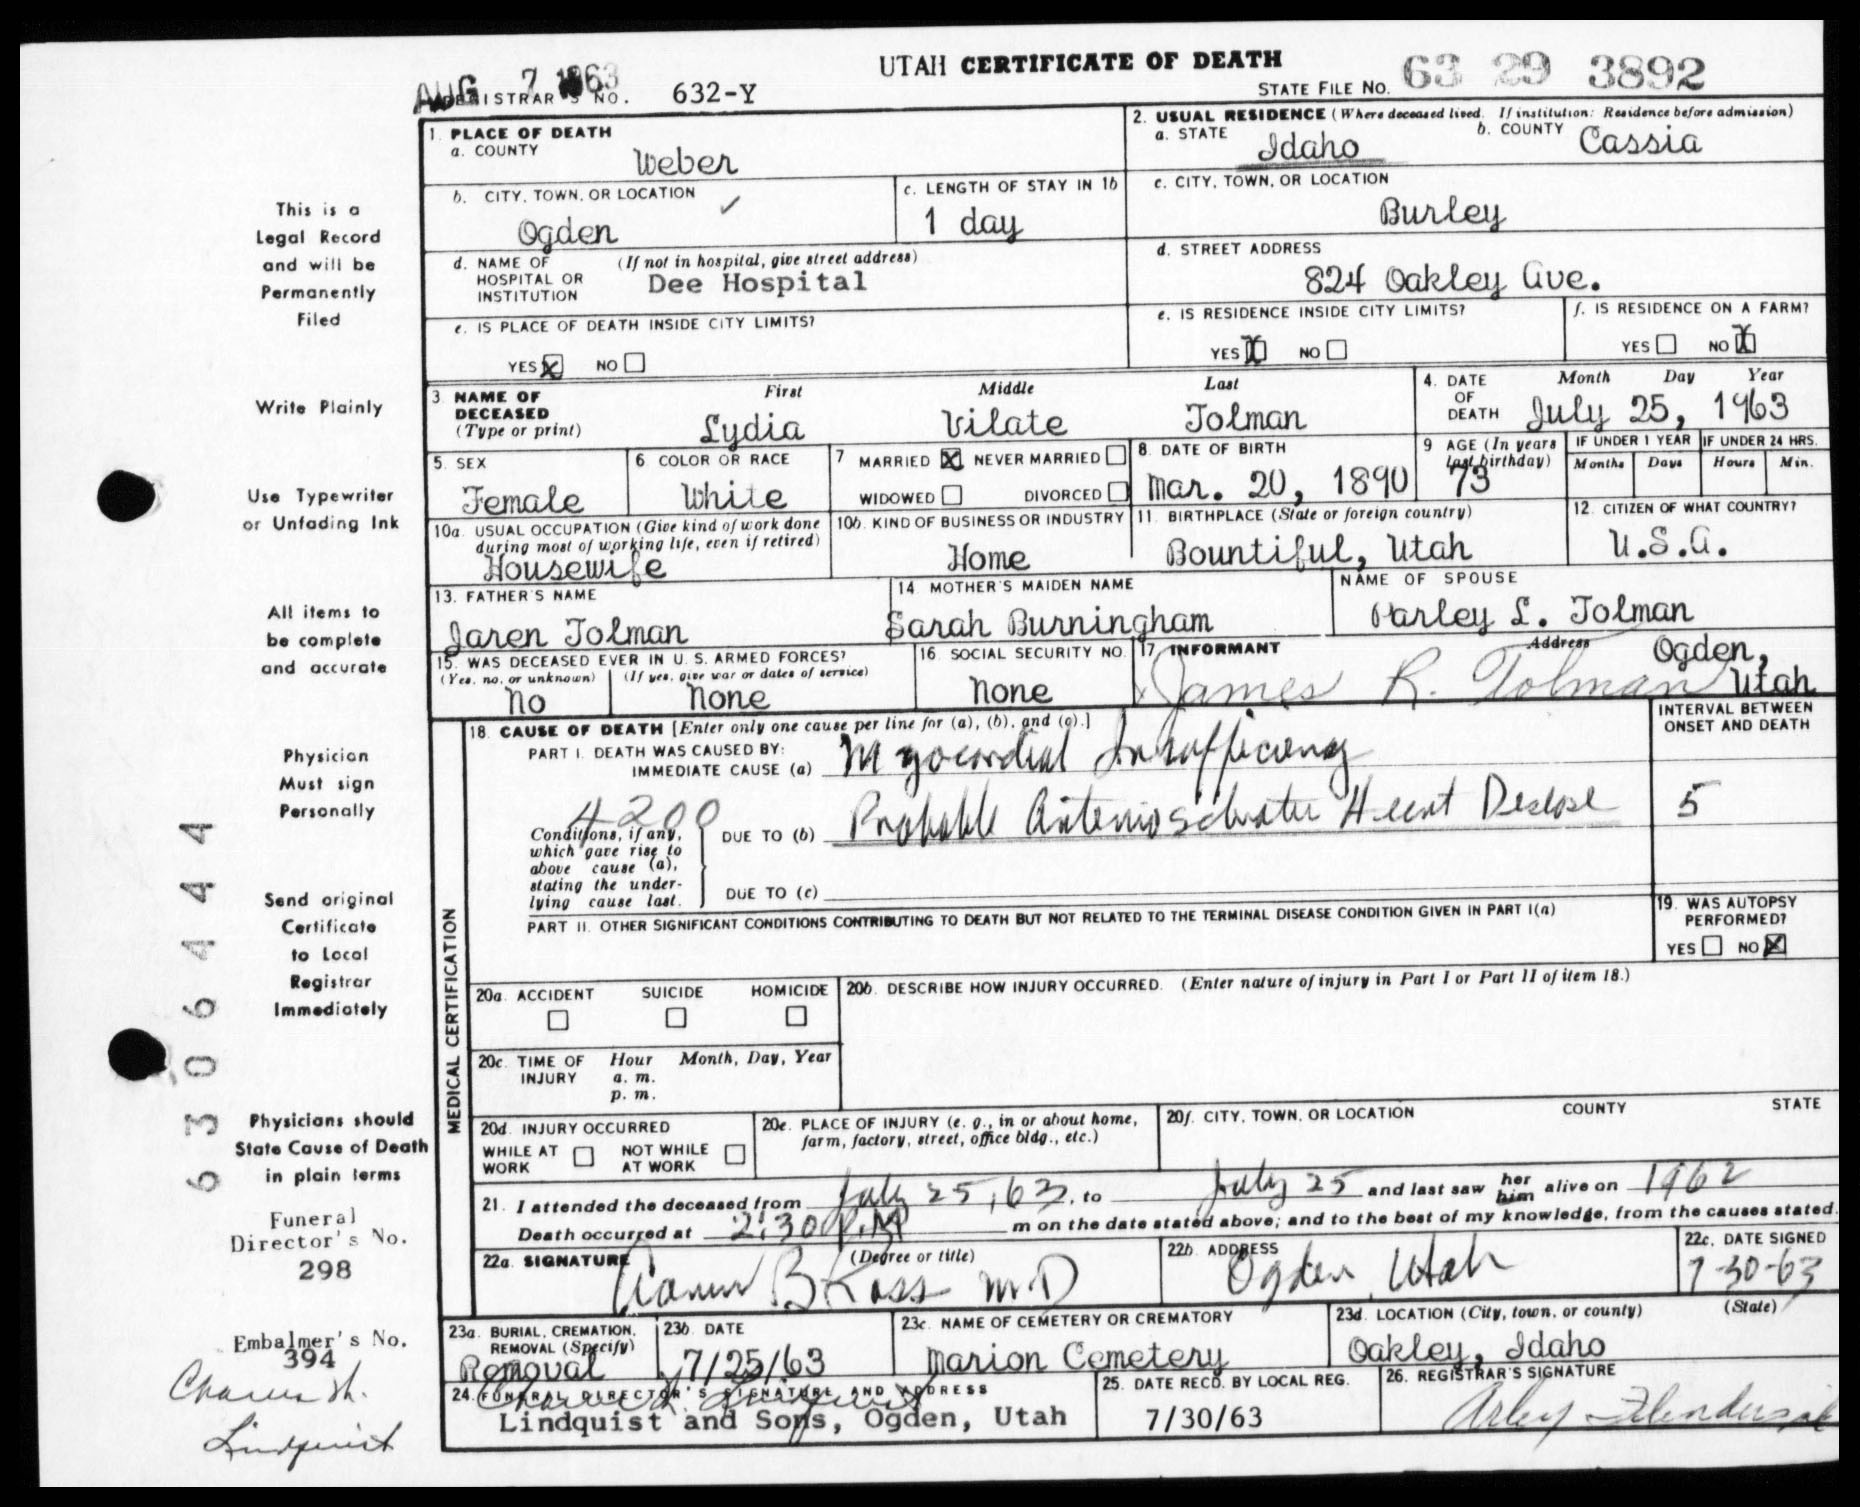 UTAH CERTIFICATE OF DEATH
AUG 7 1963
REGISTRAR'S NO. 632-Y
STATE FILE NO. 63 29 3892
1. PLACE OF DEATH
a. COUNTY
Weber
2. USUAL RESIDENCE (Where deceased lived. If institution: Residence before admission)
a. STATE Idaho b. COUNTY Cassia
b. CITY, TOWN, OR LOCATION
Ogden
c. LENGTH OF STAY IN 1b
1 day
c. CITY, TOWN, OR LOCATION
Burley
d. NAME OF HOSPITAL OR INSTITUTION (If not in hospital, give street address)
Dee Hospital
d. STREET ADDRESS
824 Oakley Ave.
e. IS PLACE OF DEATH INSIDE CITY LIMITS?
YES X NO
e. IS RESIDENCE INSIDE CITY LIMITS?
YES X NO
f. IS RESIDENCE ON A FARM?
YES NO X
3. NAME OF DECEASED (Type or print)
First Middle Last
Lydia Vilate Tolman
4. DATE OF DEATH Month Day Year
July 25, 1963
5. SEX
Female
6. COLOR OR RACE
White
7 MARRIED X NEVER MARRIED
WIDOWED DIVORCED
8. DATE OF BIRTH
Mar. 20, 1890
9 AGE (In years last birthday)
73
IF UNDER 1 YEAR
Months Days
IF UNDER 24 HRS.
Hours Min.
10a. USUAL OCCUPATION (Give kind of work done
during most of working life, even if retired)
Housewife
10b. KIND OF BUSINESS OR INDUSTRY
Home
11. BIRTHPLACE (State or foreign country)
Bountiful, Utah
12. CITIZEN OF WHAT COUNTRY?
U.S.A.
13. FATHER'S NAME
Jaren Tolman
14 MOTHER'S MAIDEN NAME
Sarah Burningham
NAME OF SPOUSE
Parley L. Tolman
15. WAS DECEASED EVER IN U. S. ARMED FORCES?
(Yes, no, or unknown) (If yes, give war or dates of service)
No None
16. SOCIAL SECURITY NO.
None
17. INFORMANT Address
James R. Tolman Ogden, Utah
MEDICAL CERTIFICATION
18. CAUSE OF DEATH [Enter only one cause per line for (a), (b), and (c).]
INTERVAL BETWEEN ONSET AND DEATH
PART I. DEATH WAS CAUSED BY:
IMMEDIATE CAUSE (a) Myocardial Insufficiency
4200
Conditions, if any,
which gave rise to
above cause (a),
stating the under-
lying cause last.
DUE TO (b) Probable Arteriosclerotic Heart Disease 5
DUE TO (c)
PART II. OTHER SIGNIFICANT CONDITIONS CONTRIBUTING TO DEATH BUT NOT RELATED TO THE TERMINAL DISEASE CONDITION GIVEN IN PART I(a)
19. WAS AUTOPSY PERFORMED?
YES NO X
20a. ACCIDENT SUICIDE HOMICIDE
20b. DESCRIBE HOW INJURY OCCURRED. (Enter nature of injury in Part I or Part II of item 18.)
20c. TIME OF INJURY Hour Month, Day, Year
a. m.
p. m.
20d. INJURY OCCURRED
WHILE AT WORK NOT WHILE AT WORK
20e. PLACE OF INJURY (e. g., in or about home,
farm, factory, street, office bldg., etc.)
20f. CITY, TOWN, OR LOCATION COUNTY STATE
21. I attended the deceased from July 25, 63, to July 25 and last saw her him alive on 1962
Death occurred at 2:30 P.M m on the date stated above; and to the best of my knowledge, from the causes stated.
22a. SIGNATURE (Degree or title)
B Ross M.D
22b. ADDRESS
Ogden, Utah
22c. DATE SIGNED
7-30-63
23a. BURIAL, CREMATION,
REMOVAL (Specify)
Removal
23b. DATE
7/25/63
23c. NAME OF CEMETERY OR CREMATORY
Marion Cemetery
23d. LOCATION (City, town, or county) (State)
Oakley, Idaho
24. FUNERAL DIRECTOR'S SIGNATURE AND ADDRESS
Lindquist and Sons, Ogden, Utah
25. DATE RECD. BY LOCAL REG.
7/30/63
26. REGISTRAR'S SIGNATURE
This is a
Legal Record
and will be
Permanently
Filed
Write Plainly
Use Typewriter
or Unfading Ink
All items to
be complete
and accurate
Physician
Must sign
Personally
Send original
Certificate
to Local
Registrar
Immediately
Physicians should
State Cause of Death
in plain terms
Funeral
Director's No.
298
Embalmer's No.
394
Lindquist
6306444